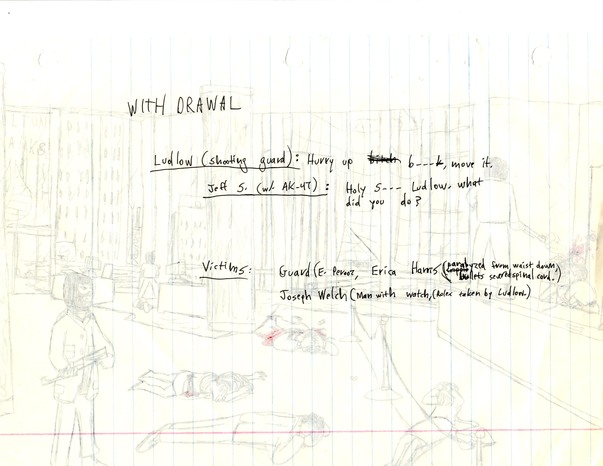 WITH DRAWAL
Ludlow (shooting guard): Hurry up bitch b---k, move it.
Jeff S. (w/ AK-47): Holy S--- Ludlow. what
did you do?
Victims: Guard (E. Perroz, Erica Harris (paralyzed from waist down,
bullets severed spinal cord.)
Joseph Welch (Man with watch, (Rolex taken by Ludlow.)